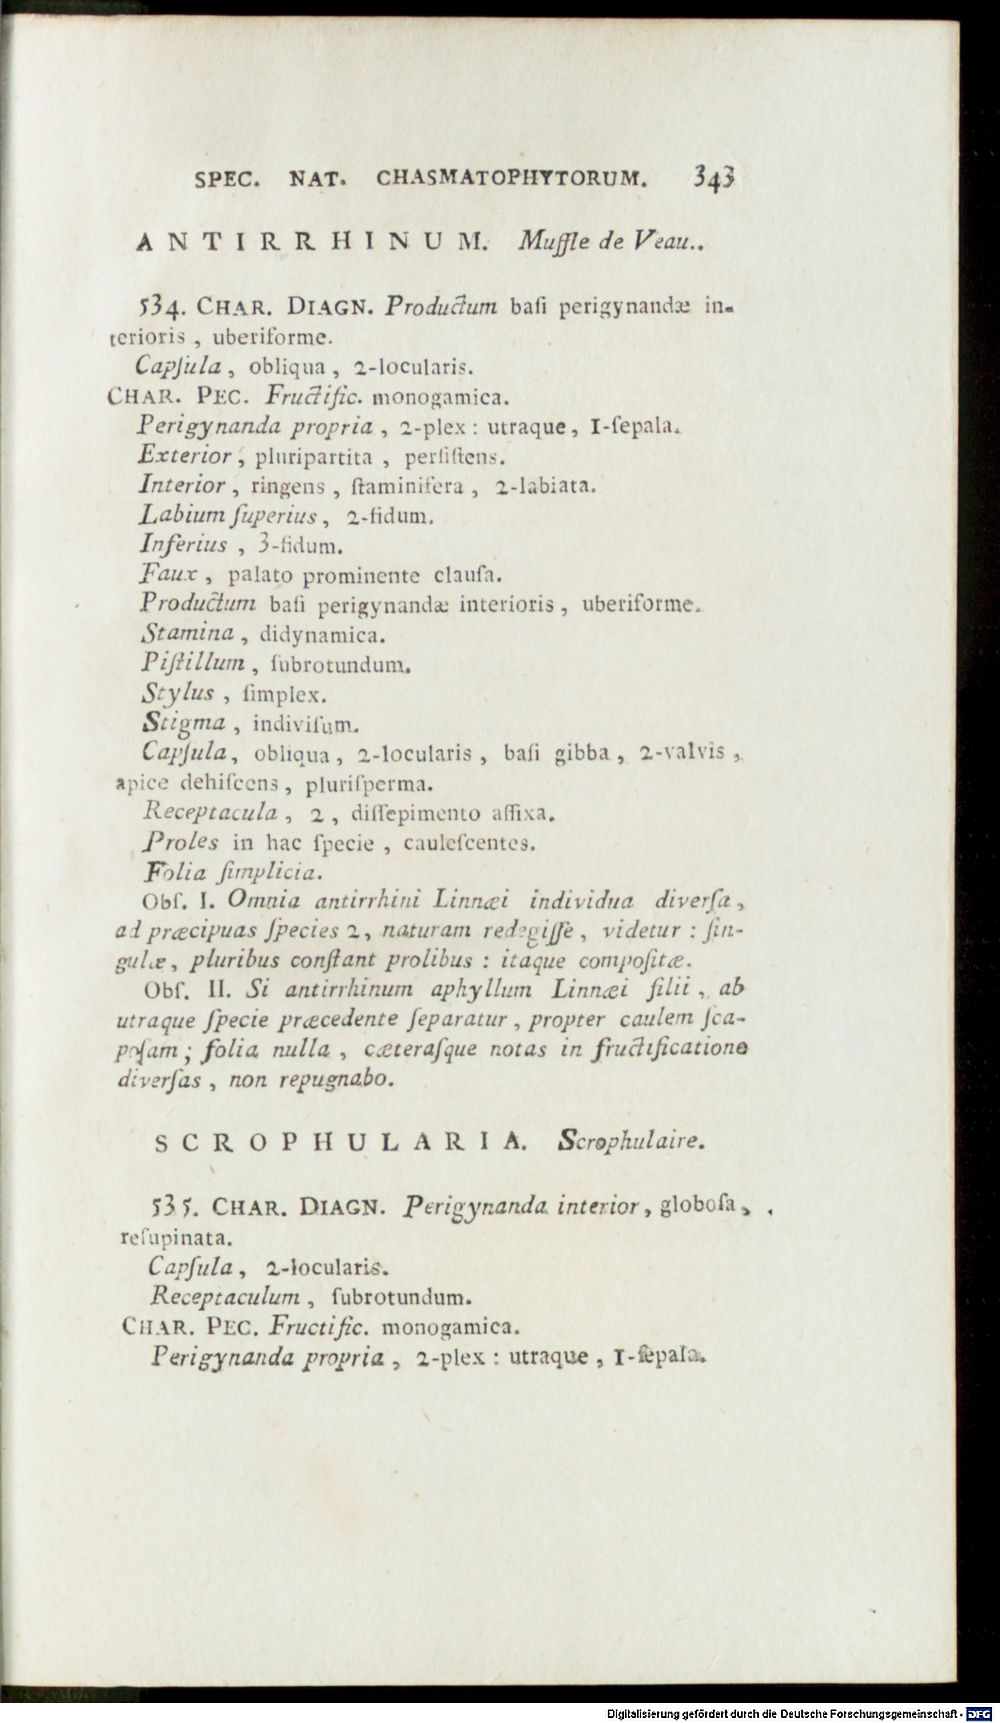 SPEC. NAT. CHASMATOPHYTORUM. 343
ANTIRRHINUM. Muffle de Veau..
534. CHAR. DIAGN. Productum baſi perigynandæ in-
terioris, uberiforme.
Capſula, obliqua, 2-locularis.
CHAR. PEC. Fructific. monogamica.
Perigynanda propria, 2-plex: utraque, 1-ſepala.
Exterior, pluripartita, perſiſtens.
Interior, ringens, ſtaminifera, 2-labiata.
Labium ſuperius, 2-fidum.
Inferius, 3-fidum.
Faux, palato prominente clauſa.
Productum baſi perigynandæ interioris, uberiforme.
Stamina, didynamica.
Piſtillum, ſubrotundum.
Stylus, ſimplex.
Stigma, indiviſum.
Capſula, obliqua, 2-locularis, baſi gibba, 2-valvis,
apice dehiſcens, pluriſperma.
Receptacula, 2, diſſepimento affixa.
Proles in hac ſpecie, cauleſcentes.
Folia ſimplicia.
Obſ. I. Omnia antirrhini Linnæi individua diverſa,
ad præcipuas ſpecies 2, naturam redegiſſe, videtur: ſin-
gulæ, pluribus conſtant prolibus: itaque compoſitæ.
Obſ. II. Si antirrhinum aphyllum Linnæi filii, ab
utraque ſpecie præcedente ſeparatur, propter caulem ſca-
poſam; folia nulla, cæteraſque notas in fructificatione
diverſas, non repugnabo.
SCROPHULARIA. Scrophulaire.
535. CHAR. DIAGN. Perigynanda interior, globoſa,
reſupinata.
Capſula, 2-locularis.
Receptaculum, ſubrotundum.
CHAR. PEC. Fructific. monogamica.
Perigynanda propria, 2-plex: utraque, 1-ſepala.
Digitalisierung gefördert durch die Deutsche Forschungsgemeinschaft - DFG